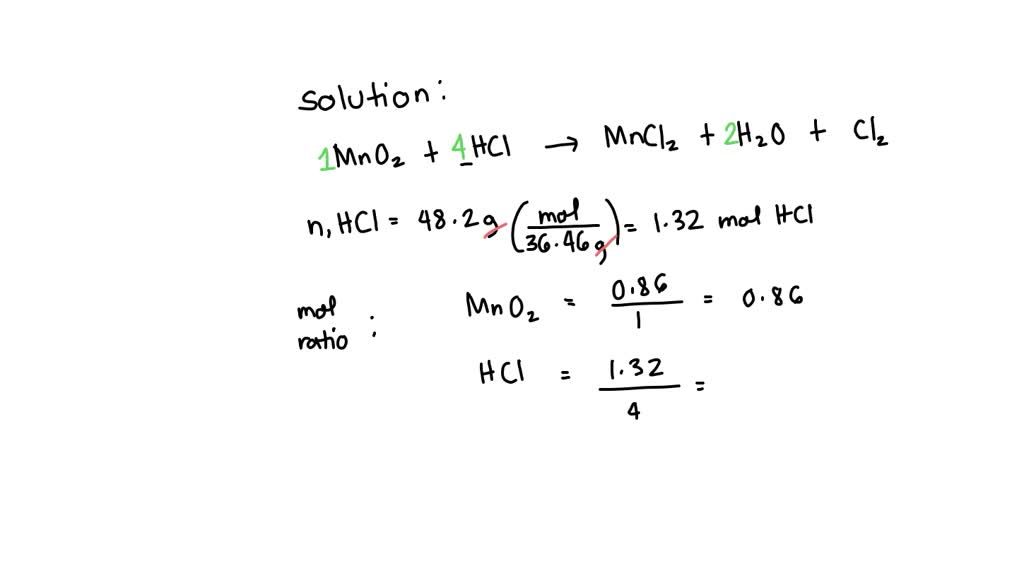 solution:
1MnO₂ + 4HCl → MnCl₂ + 2H₂O + Cl₂
n, HCl = 48.2g (mol/36.46g) = 1.32 mol HCl
mol ratio : MnO₂ = 0.86/1 = 0.86
HCl = 1.32/4 =